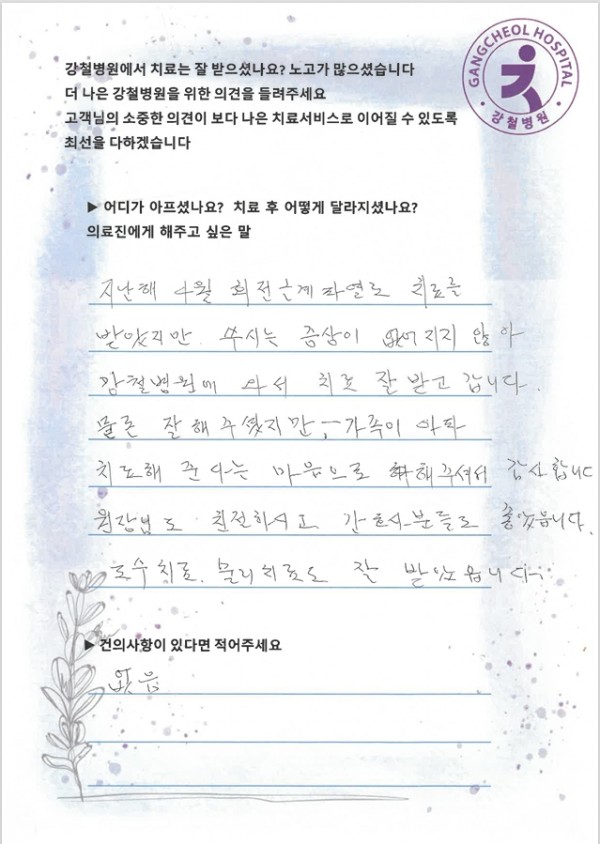 GANGCHEOL HOSPITAL
강철병원
강철병원에서 치료는 잘 받으셨나요? 노고가 많으셨습니다
더 나은 강철병원을 위한 의견을 들려주세요
고객님의 소중한 의견이 보다 나은 치료서비스로 이어질 수 있도록
최선을 다하겠습니다
▶ 어디가 아프셨나요? 치료 후 어떻게 달라지셨나요?
의료진에게 해주고 싶은 말
지난해 4월 회전근계파열로 치료를
받았지만. 쑤시는 증상이 없어지지 않아
강철병원에 와서 치료 잘 받고 갑니다.
물론 잘 해 주셨지만, 가족이 아파
치료해 준다는 마음으로 해주셔서 감사합니다
원장님도 친절하시고 간호사분들도 좋았습니다.
도수치료. 물리치료도 잘 받았습니다.
▶ 건의사항이 있다면 적어주세요
없음